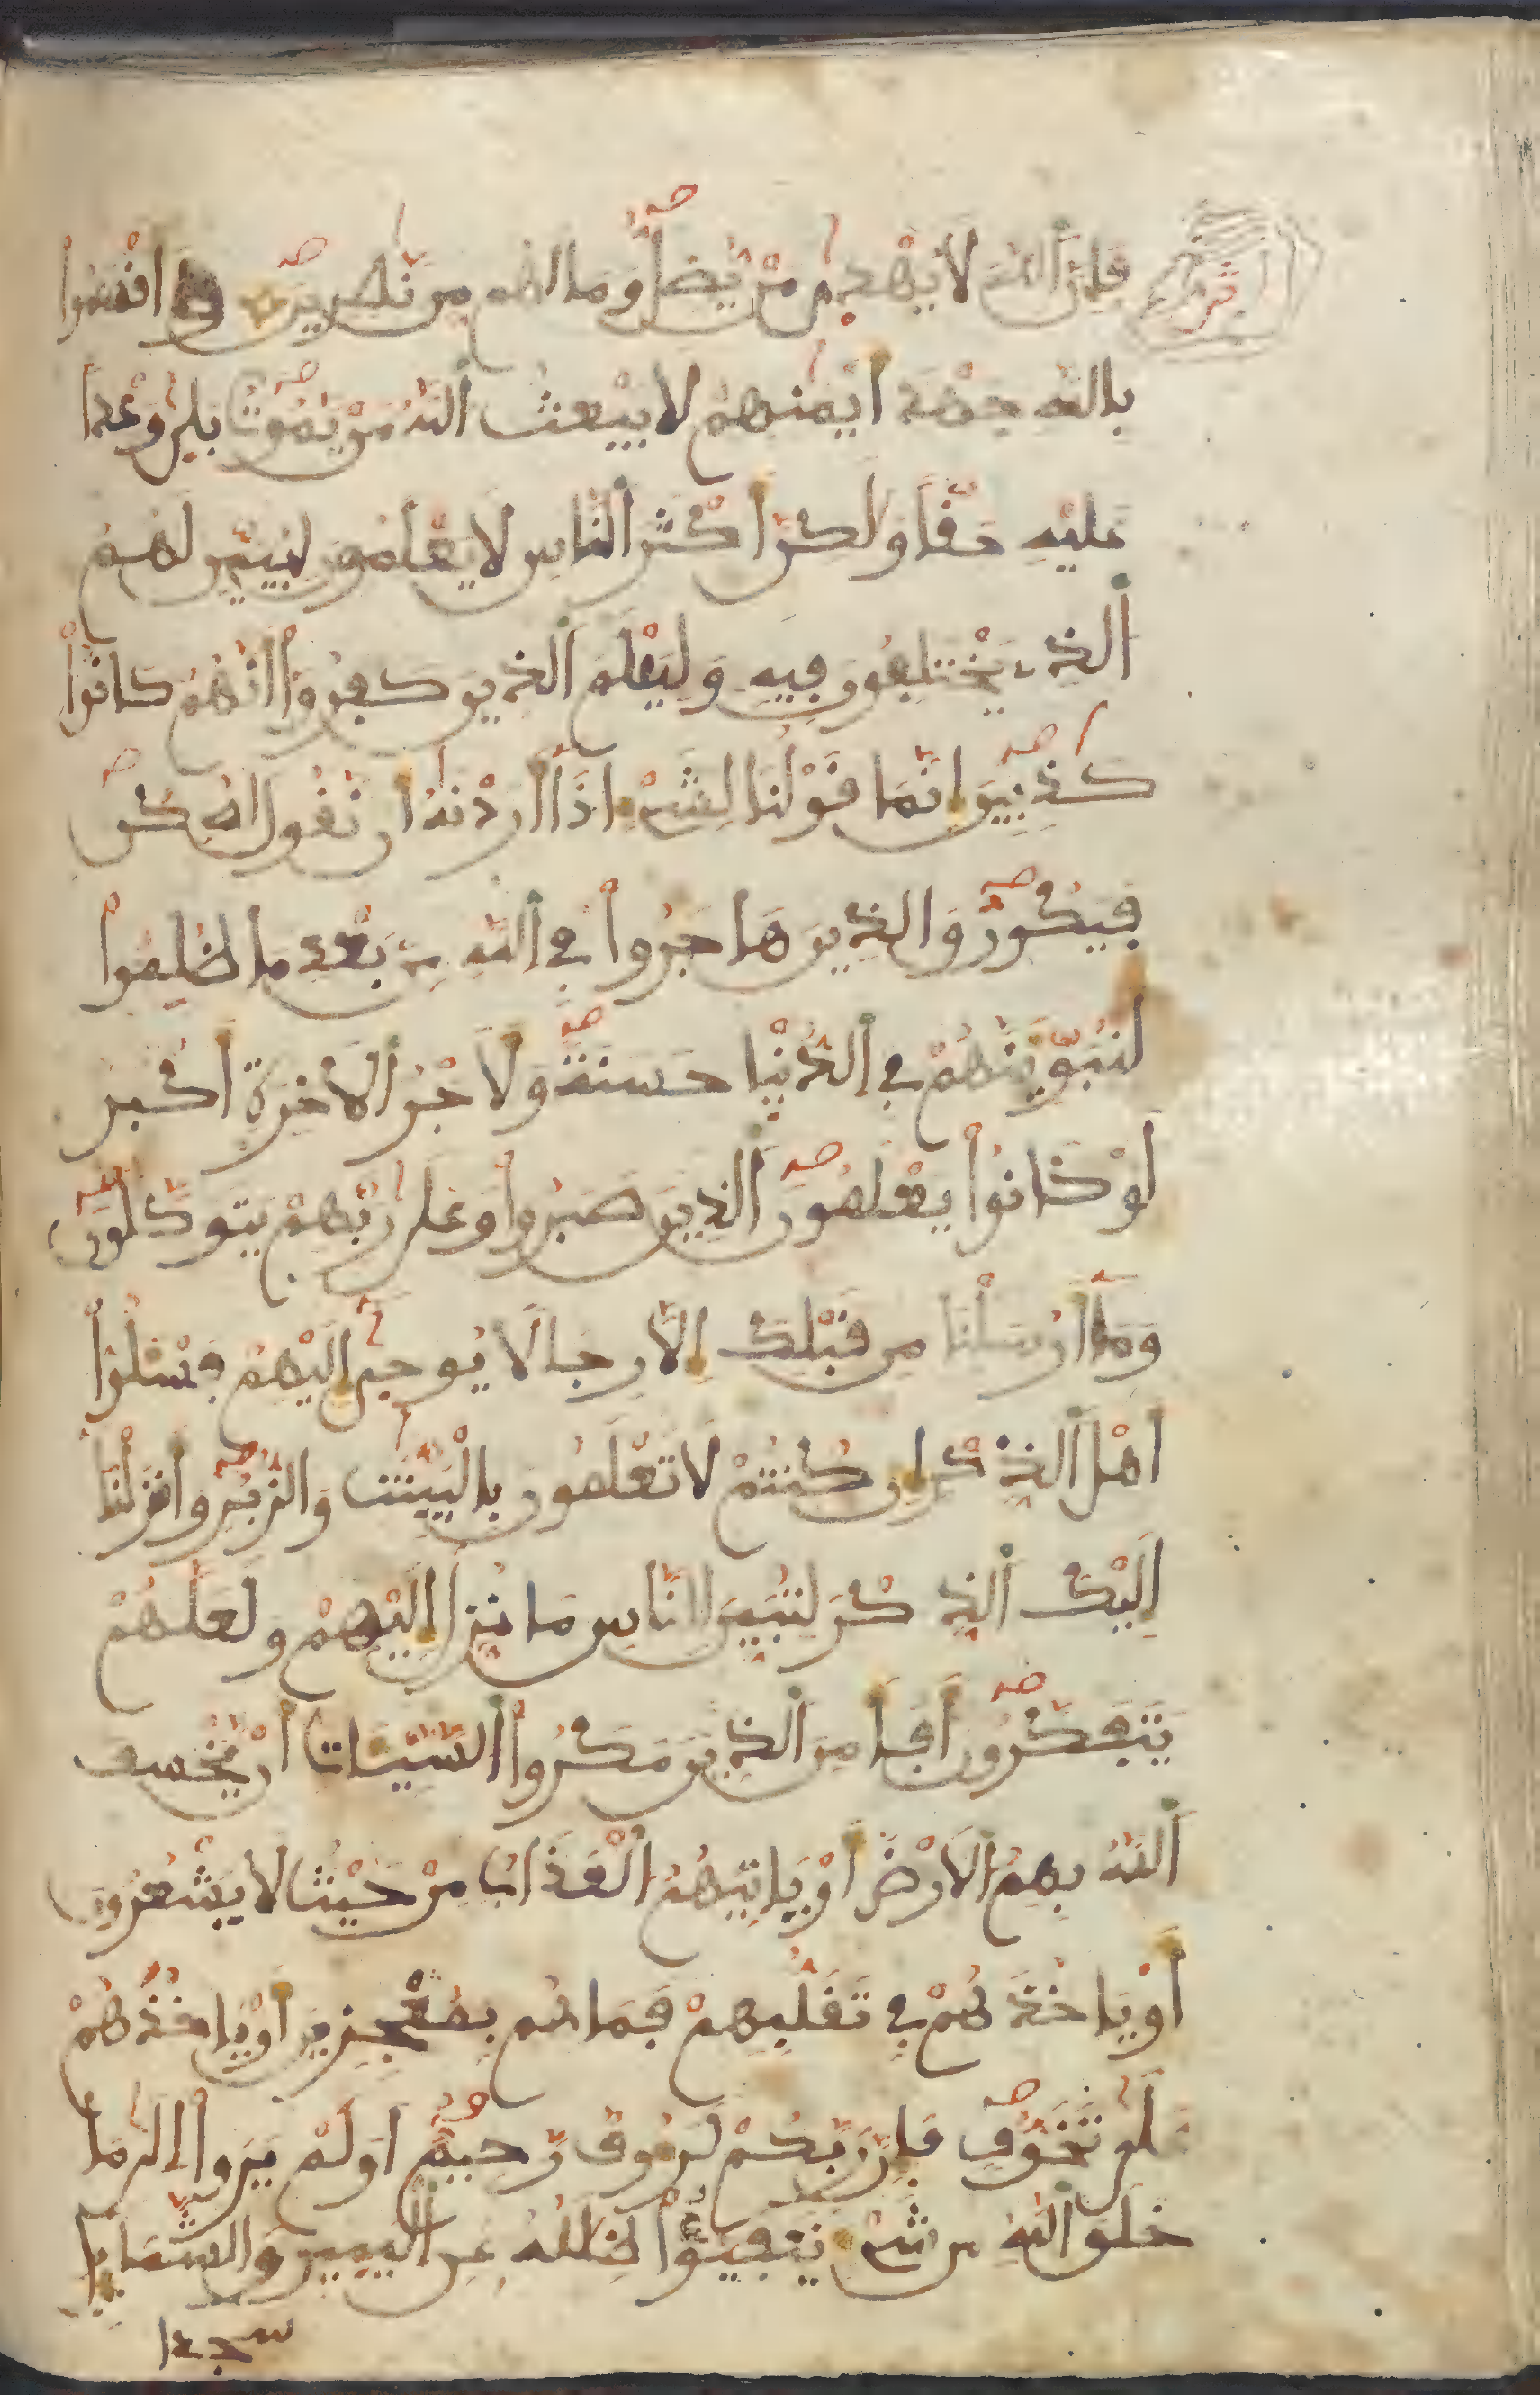 فإن الله لا يهدى من يضل وما لهم من نصرين وأقسموا
بالله جهد أيمنهم لا يبعث الله من يموت بلى وعدا
عليه حقا ولكن أكثر الناس لا يعلمون ليبين لهم
الذى يختلفون فيه وليعلم الذين كفروا أنهم كانوا
كذبين إنما قولنا لشىء إذا أردنه أن نقول له كن
فيكون والذين هاجروا فى الله من بعد ما ظلموا
لنبوئنهم فى الدنيا حسنة ولأجر الأخرة أكبر
لو كانوا يعلمون الذين صبروا وعلى ربهم يتوكلون
وما أرسلنا من قبلك إلا رجالا يوحى إليهم فسلوا
أهل الذكر إن كنتم لا تعلمون بالبينت والزبر وأنزلنا
إليك الذكر لتبين للناس ما نزل إليهم ولعلهم
يتفكرون أفأمن الذين مكروا السيات أن يخسف
الله بهم الأرض أو ياتيهم العذاب من حيث لا يشعرون
أو ياخذهم فى تقلبهم فما هم بمعجزين أو ياخذهم
على تخوف فإن ربكم لرءوف رحيم أولم يروا إلى ما
خلق الله من شىء يتفيؤا ظلله عن اليمين والشمايل
سجدا